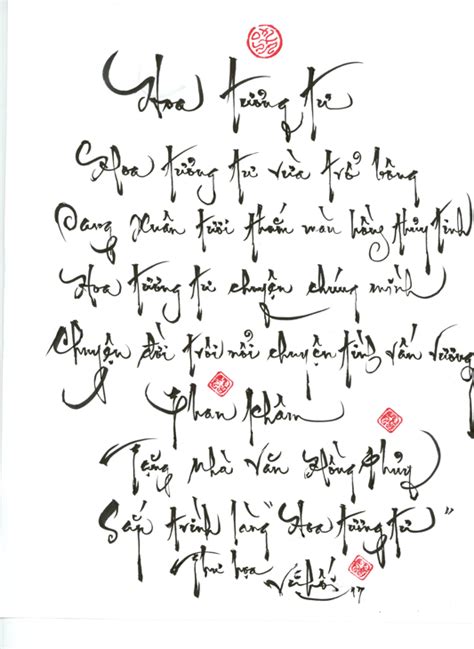 Hoa tưởng tư
Hoa tưởng tư vừa trổ bông
Đang Xuân tươi thắm màu hồng thủy tinh
Hoa tương tư chuyện chúng mình
Chuyện đời trôi nổi chuyện tình vấn vương
Phan Khâm
Tặng nhà văn Hồng Thủy
Sắp trình làng "Hoa tương tư"
Thư họa Vũ Hối 17